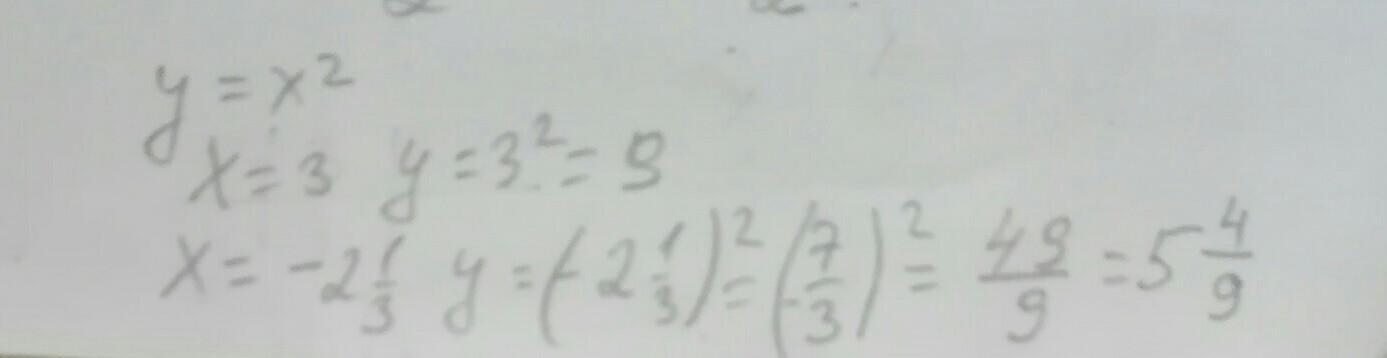 y = x²
x = 3 y = 3² = 9
x = -2 1/3 y = (-2 1/3)² = (-7/3)² = 49/9 = 5 4/9